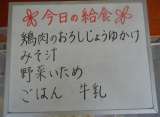 今日の給食
鶏肉のおろしじょうゆかけ
みそ汁
野菜いため
ごはん 牛乳